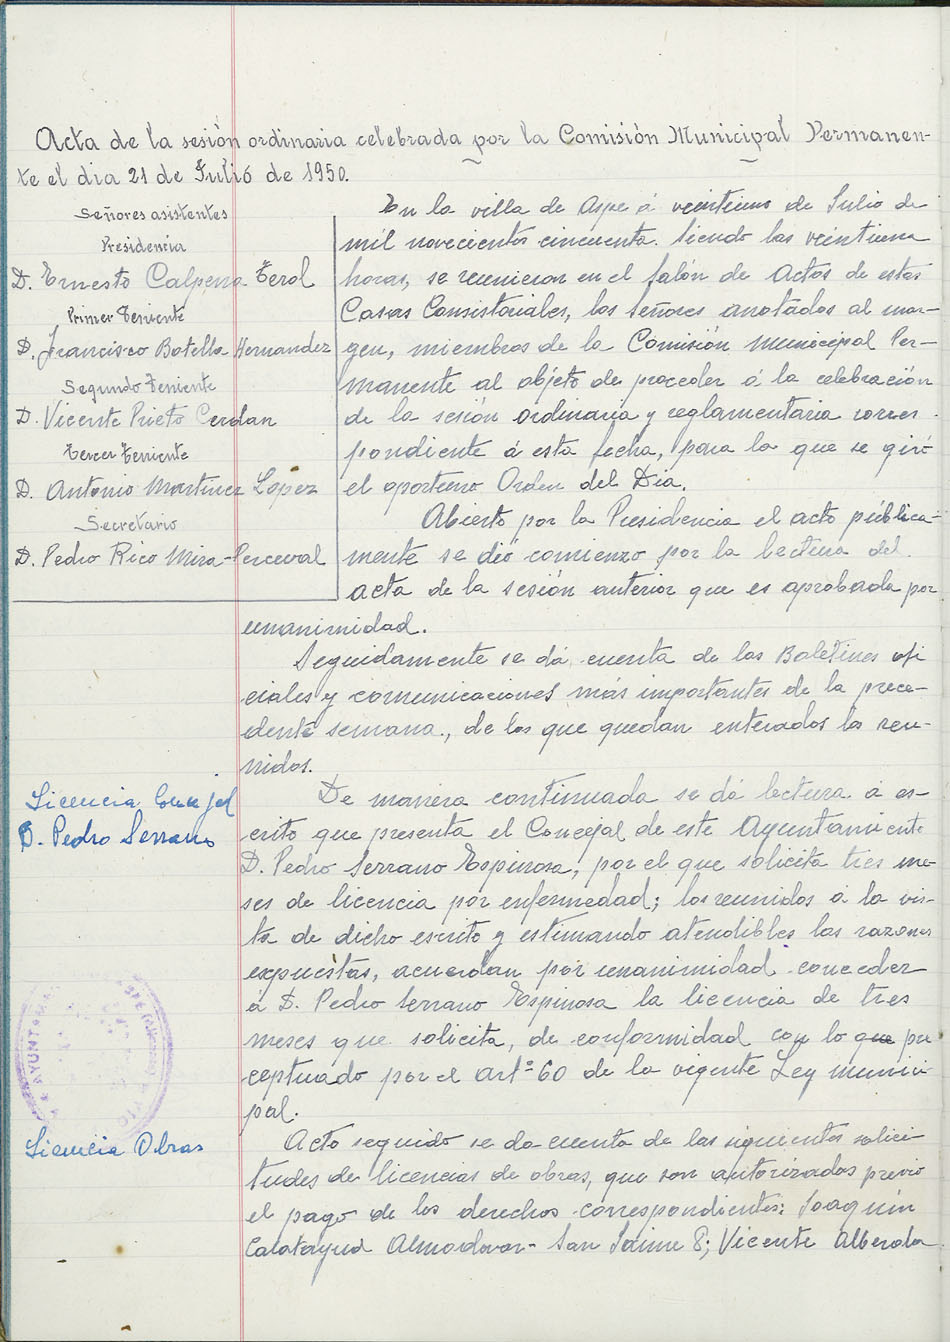 Acta de la sesión ordinaria celebrada por la Comisión Municipal Permanen-
te el dia 21 de Julio de 1950.
Señores asistentes
Presidencia
D. Ernesto Calpena Terol
Primer Teniente
D. Francisco Botella Hernandez
Segundo Teniente
D. Vicente Prieto Cerdan
Tercer Teniente
D. Antonio Martinez Lopez
Secretario
D. Pedro Rico Mira-Perceval
En la villa de Aspe á veintiuno de Julio de
mil novecientos cincuenta. Siendo las veintiuna
horas, se reunieron en el Salón de Actos de estas
Casas Consistoriales, los señores anotados al mar-
gen, miembros de la Comisión Municipal Per-
manente al objeto de proceder á la celebración
de la sesión ordinaria y reglamentaria corres-
pondiente á esta fecha, para la que se giró
el oportuno Orden del Dia.
Abierto por la Presidencia el acto pública-
mente se dió comienzo por la lectura del
acta de la sesión anterior que es aprobada por
unanimidad.
Seguidamente se dá cuenta de los Boletines ofi
ciales y comunicaciones más importantes de la prece-
dente semana, de los que quedan enterados los reu-
nidos.
Licencia Concejal
D. Pedro Serrano
De manera continuada se dá lectura a es-
crito que presenta el Concejal de este Ayuntamiento
D. Pedro Serrano Espinosa, por el que solicita tres me-
ses de licencia por enfermedad; los reunidos á la vis-
ta de dicho escrito y estimando atendibles las razones
expuestas, acuerdan por unanimidad conceder
á D. Pedro Serrano Espinosa la licencia de tres
meses que solicita, de conformidad con lo que pre
ceptuado por el artº 60 de la vigente Ley munici-
pal.
AYUNTAMI
Licencia Obras
Acto seguido se da cuenta de las siguientes solici-
tudes de licencias de obras, que son autorizadas previo
el pago de los derechos correspondientes: Joaquín
Calatayud Almodovar - San Jaime 8; Vicente Alberola